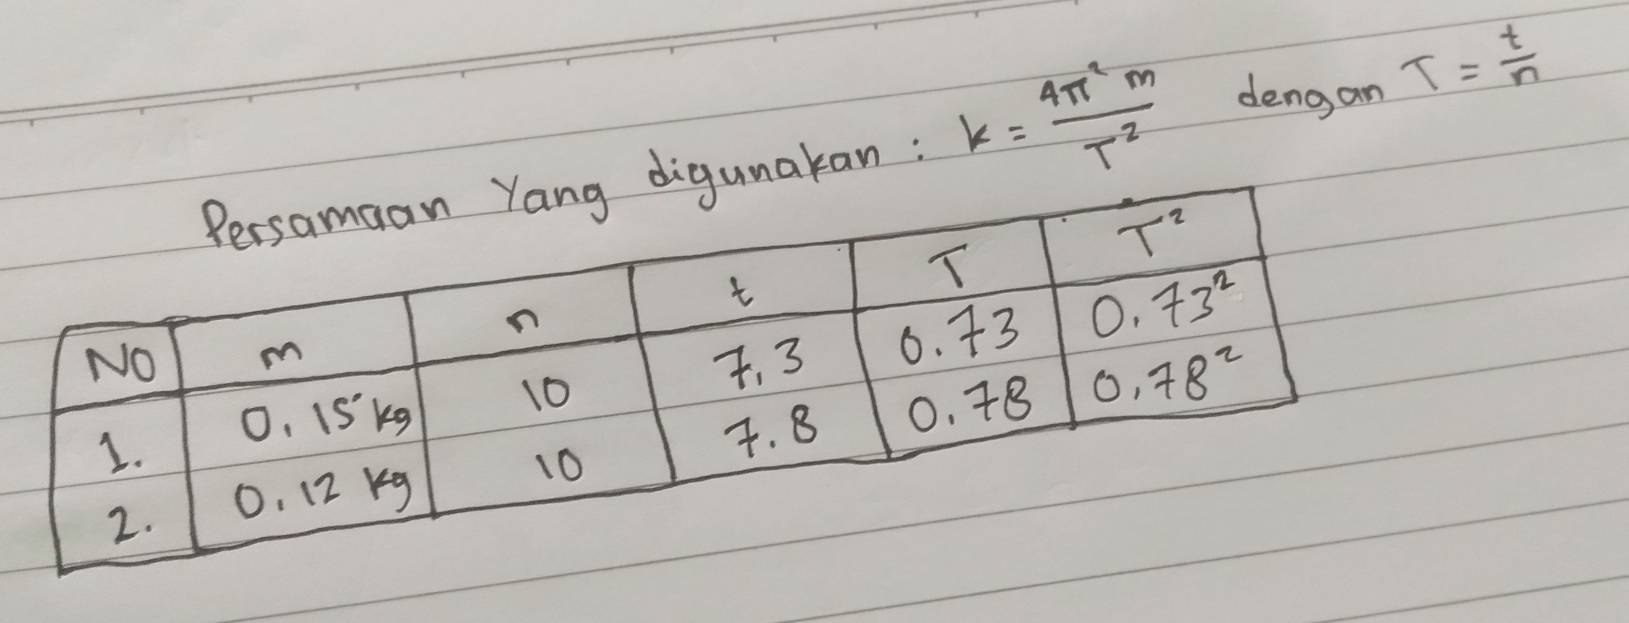 Persamaan Yang digunakan : k = 4π² m / T² dengan T = t / n
NO m n t T T²
1. 0,15 kg 10 7,3 0.73 0.73²
2. 0.12 kg 10 7.8 0.78 0,78²